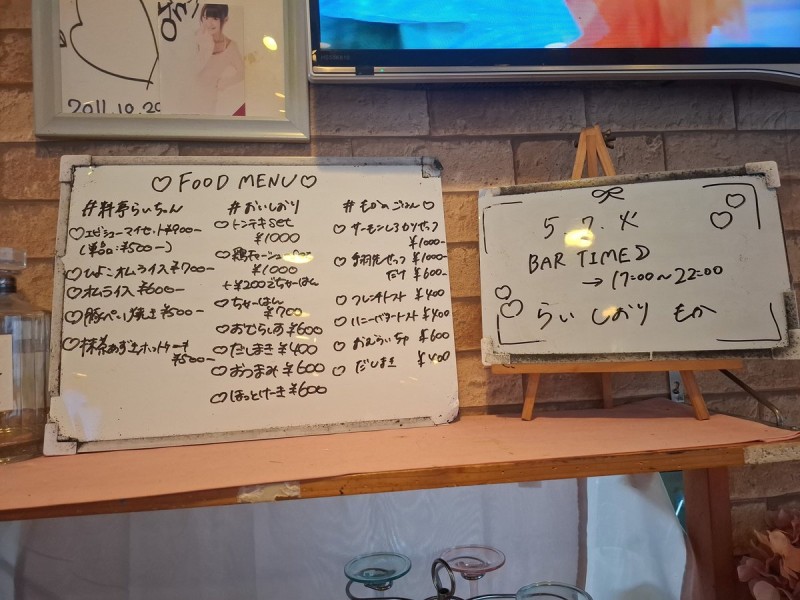 2011.10.20
♡FOOD MENU♡
#料亭らぃちゃん
♡エビシューマイセット¥900ー
(単品:¥500ー)
♡ひよこオムライス¥700ー
♡オムライス¥600ー
♡豚ぺー焼き¥500ー
♡抹茶あずきホットケーキ
¥500ー
#おいしおり
♡トンテキset
¥1000
♡鶏チャーシュー
¥1000
+¥200でちゃーはん
♡ちゃーはん
¥700
♡おむらいす¥600
♡だしまき¥400
♡おつまみ¥600
♡ほっとけーき¥600
#もかのごはん♡
♡サーモンしらすせっつ
¥1000-
♡手羽先せっつ¥1000-
だけ¥600-
♡フレンチトースト¥400
♡ハニーバタートースト¥400
♡おむらいちゅ¥600
♡だしまき¥400
5.7.火
BAR TIME
→17:00~22:00
らぃ しおり もか